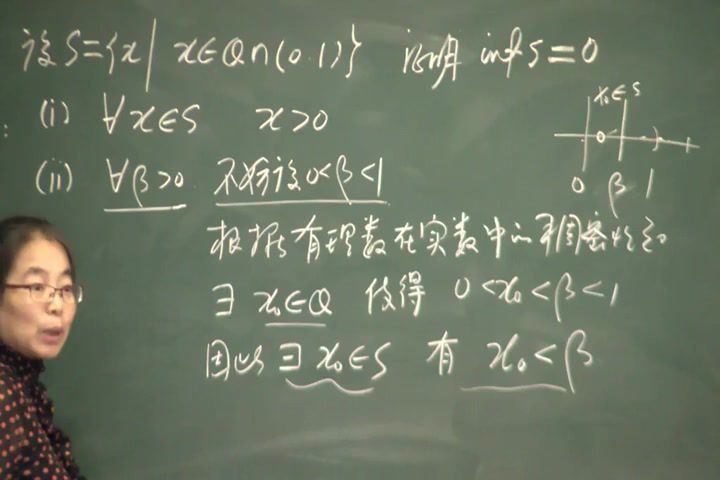 设S={x| x∈Q∩(0.1)} 证明 inf S=0
(i) ∀x∈S x>0
(ii) ∀β>0 不妨设0<β<1
根据有理数在实数中的稠密性知
∃ x₀∈Q 使得 0<x₀<β<1
因此 ∃ x₀∈S 有 x₀<β
x₀∈S
0 β 1